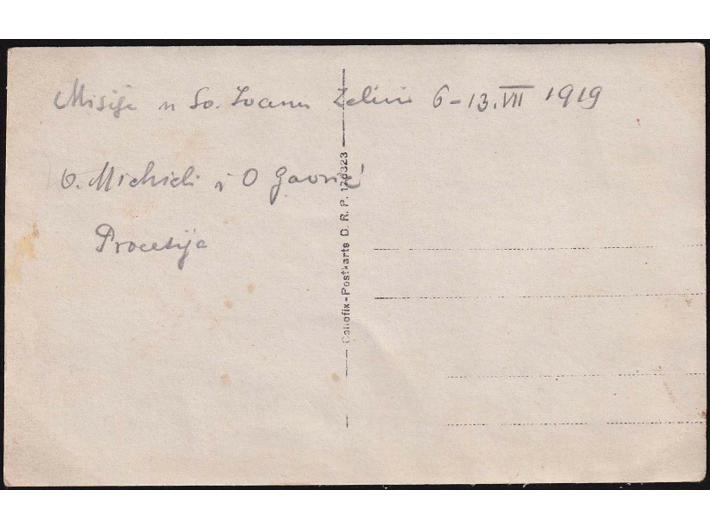 Misije u Sv. Ivanu Zelini 6-13. VII 1919
O. Michieli i O Gavrić
Procesija
Cellofix-Postkarte D. R. P. 179323